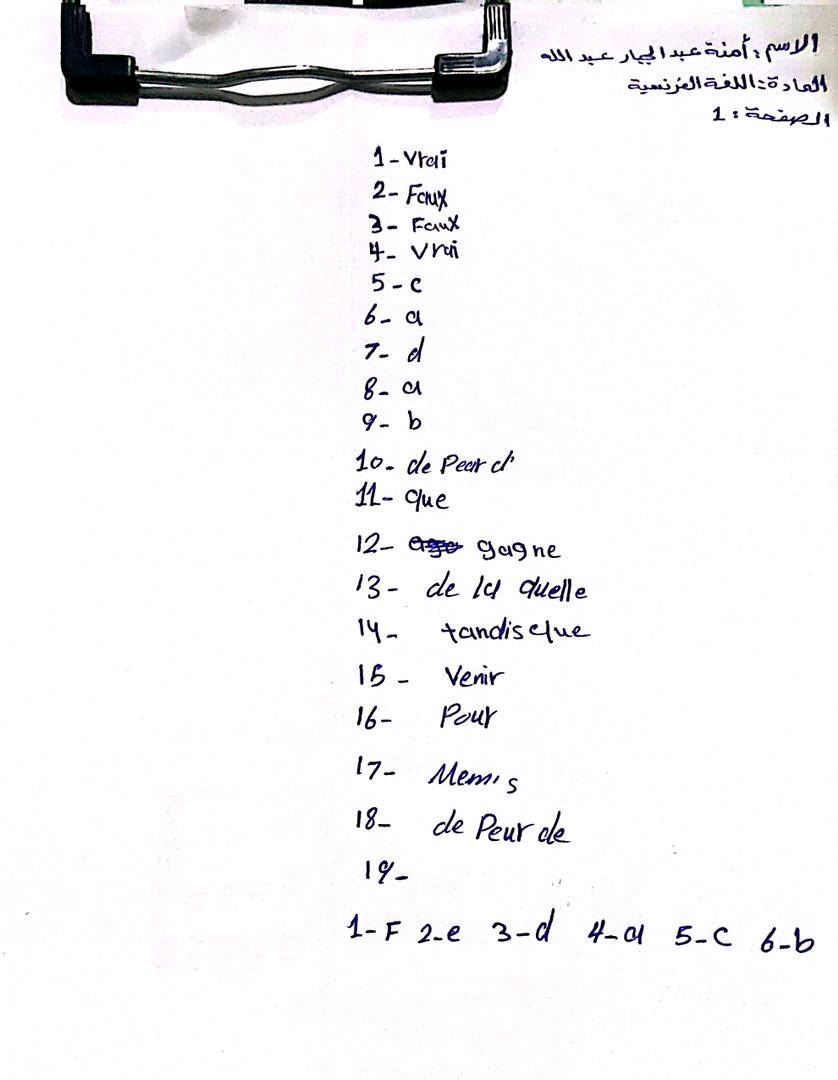 الاسم : أمنة عبد الجبار عبد الله
المادة : اللغة الفرنسية
الصفحة : 1
1- Vrai
2- Faux
3- Faux
4- Vrai
5- c
6- a
7- d
8- a
9- b
10- de Pear d'
11- que
12- gagne
13- de la quelle
14- tandis que
15- Venir
16- Pour
17- Memis
18- de Peur de
19-
1-F 2-e 3-d 4-a 5-C 6-b